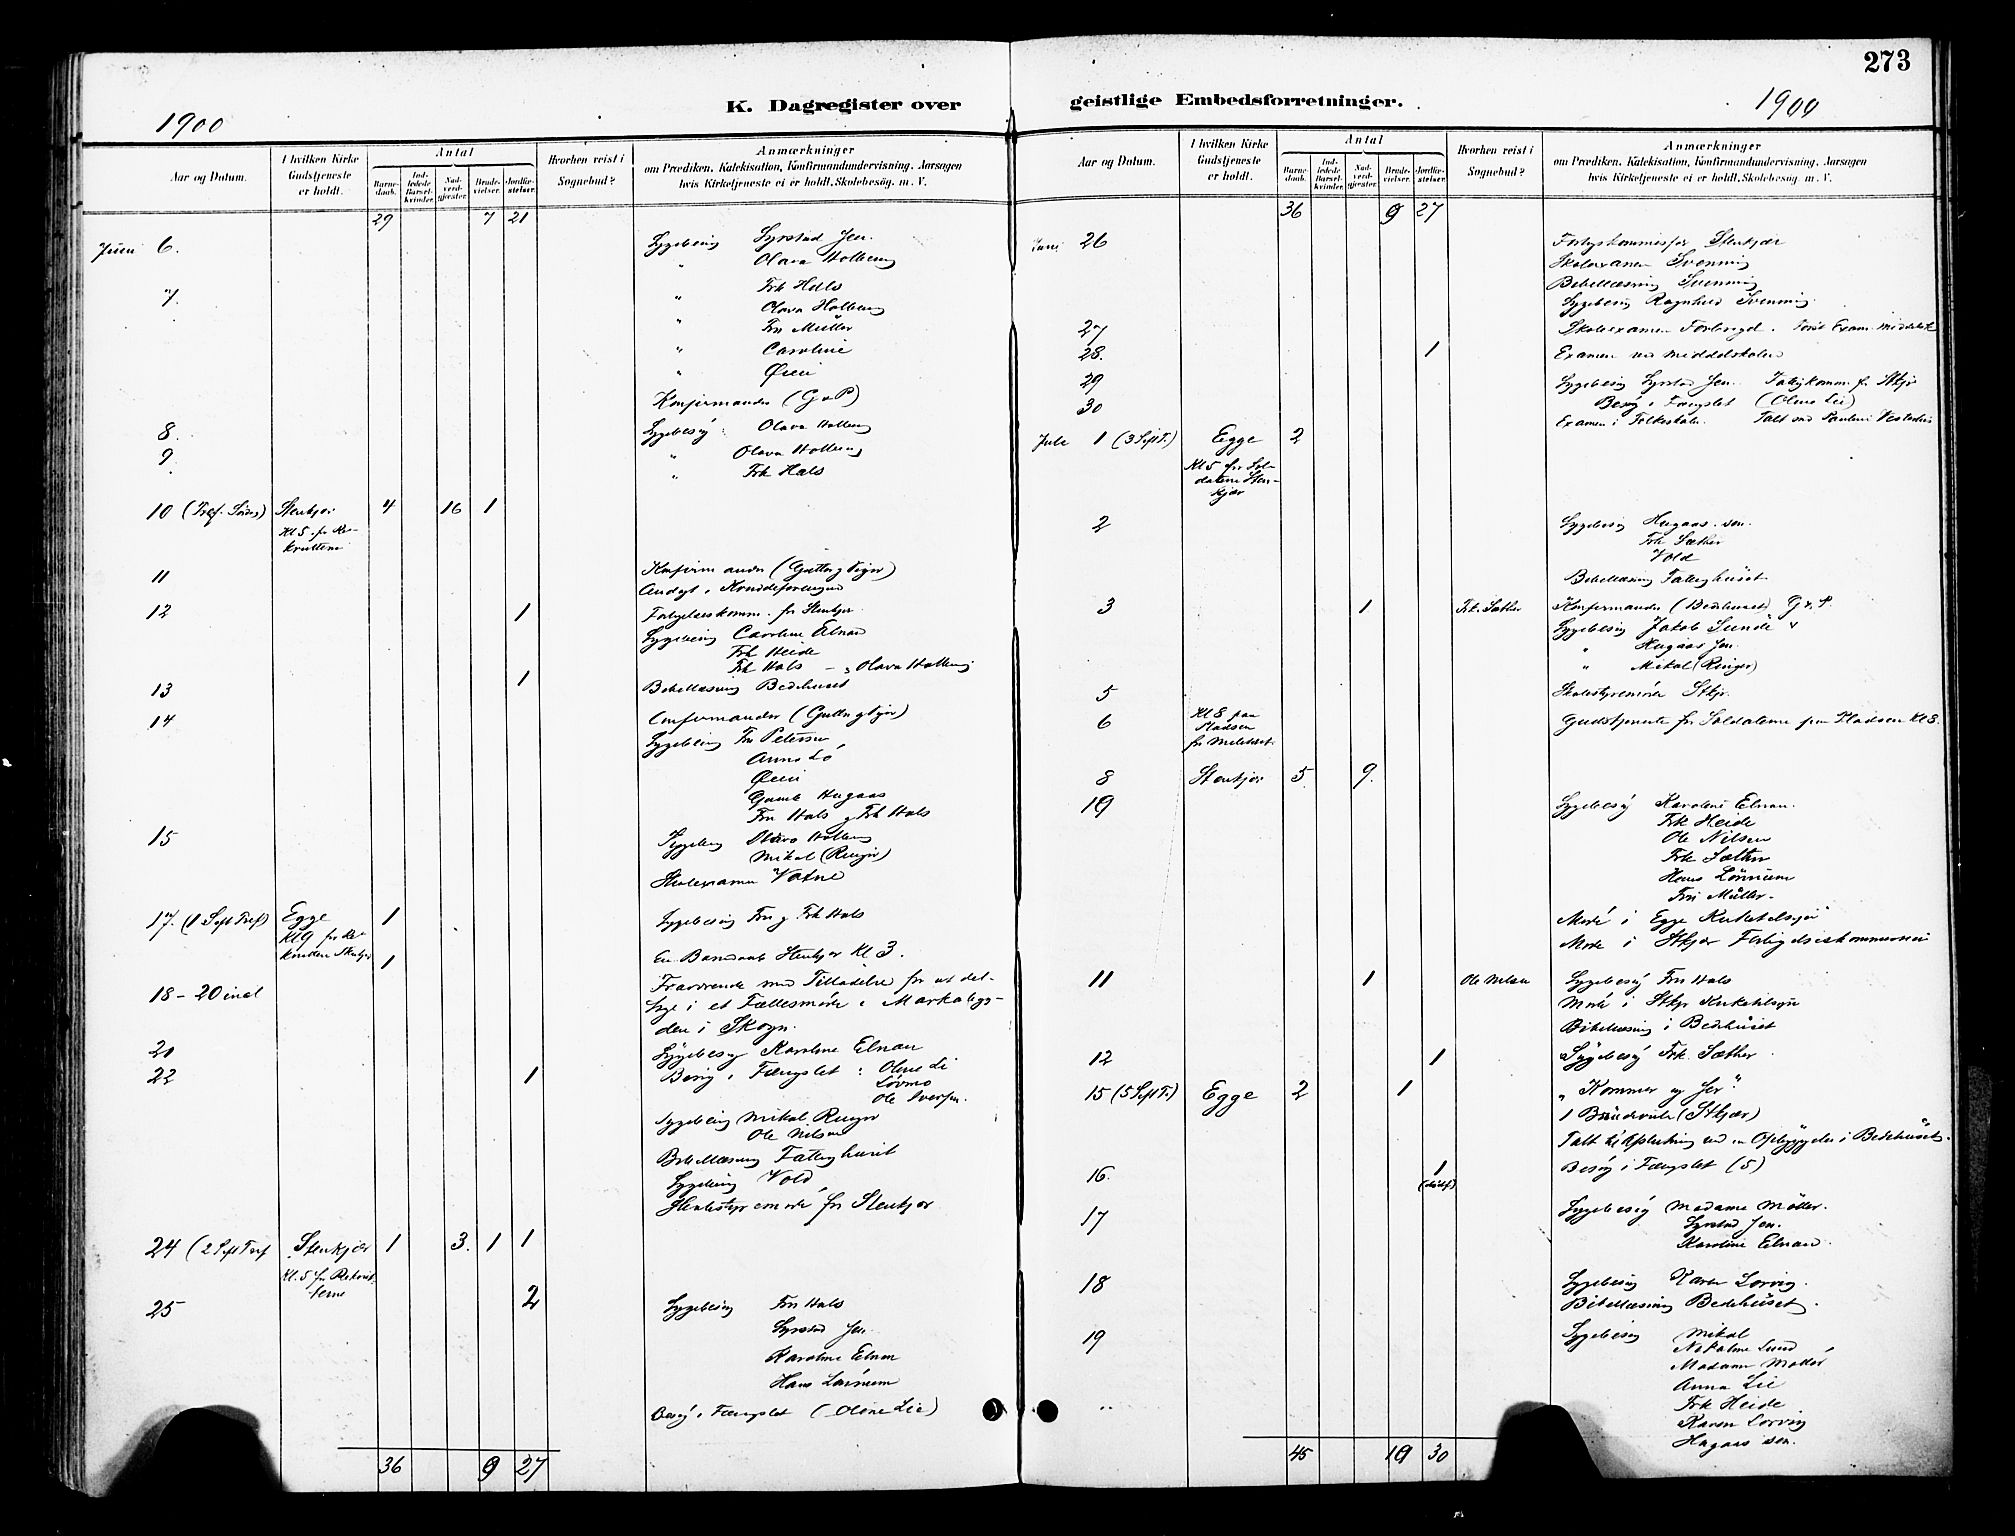 273
K. Dagregister over
geistlige Embedsforretninger.
1900
1900
Aar og Datum.
I hvilken Kirke Gudstjeneste er holdt.
Antal
Barnedaab.
Indledede Barselkvinder.
Nadverdgjester.
Brudevielser.
Jordfæstelser.
Hvorhen reist i Sognebud?
Anmærkninger
om Prædiken, Katekisation, Konfirmandundervisning, Aarsagen
hvis Kirketjeneste ei er holdt, Skolebesøg. m. V.
29 7 21
Juni 6. Sygebesøg Syrstad Jen.
" Olava Holberg
7 " Frk Hals
" Olava Holberg
" Fru Müller
" Caroline
" Øien
Konfirmander (G & P)
8. Sygebesøg: Olava Holberg
9 " Olava Holberg
" Frk Hals
10 Stenkjær 4 16 1
Kl 5 for Rekrutterne
11 Konfirmander (Gutter og Piger)
Andagt i Kvindeforeningen
12 1 Forligelseskomm. for Stenkjær
Sygebesøg Caroline Elnan
Frk Heide
Frk Hals - Olava Holberg
13 1 Bibellæsning Bedehuset
14 Confirmander (Gutter og Piger)
Sygebesøg Fru Petersen
Anna Lø
Øien
Gamle Hugaas
Fru Hals og Frk Hals
15 Sygebesøg Olava Holberg
Mikal (Ringer)
Skolexamen Vatne
17. (1 S eft Tref) Egge 1 Sygebesøg Fru og Frk Hals
Kl 9 for Rekrutterne Stenkjær 1 En Barnedaab Stenkjær Kl 3.
18 - 20 incl Fraværende med Tilladelse for at deltage i et Fællesmøde i Markabygden i Skogn.
20 Sygebesøg Karoline Elnan
22 1 Besøg i Fængslet: Oline Li
Løvmo
Ole Iversen.
Sygebesøg Mikal Ringer
Ole Nilsen
Bibellæsning Fattighuset
Sygebesøg Vold
Skolestyremøde for Stenkjær
24 (2 S eft Tref Stenkjær 1 3. 1 1
Kl. 5 for Rekrutterne
25 2 Sygebesøg Fru Hals
Syrstad Jen.
Karoline Elnan
Hans Lønnum
Besøg i Fængslet (Oline Lie)
36 9 27
Aar og Datum.
I hvilken Kirke Gudstjeneste er holdt.
Antal
Barnedaab.
Indledede Barselkvinder.
Nadverdgjester.
Brudevielser.
Jordfæstelser.
Hvorhen reist i Sognebud?
Anmærkninger
om Prædiken, Katekisation, Konfirmandundervisning, Aarsagen
hvis Kirketjeneste ei er holdt, Skolebesøg. m. V.
36 9 27
Juni 26 Stenkjær
Skolexamen Svenning
Bibellæsning Svenning
Sygebesøg Ragnhild Svenning
27 Skolexamen
28. 1 Examen ved Middelskolen
29 Sygebesøg Syrstad Jen. Fattigkomm. for Stkjr
Besøg i Fængslet (Oline Lie)
30 Examen i Folkeskolen.
Juli 1 (3 S eft T.) Egge 2
Kl 5 for Soldaterne Stenkjær
2 Sygebesøg Hugaas sen.
Frk Sæther
Vold
Bibellæsning Fattighuset
3 1 Frk. Sæther Konfirmander (Bedehuset) G & P.
Sygebesøg Jakob Sunde
" Hugaas Jen.
" Mikal (Ringer)
5 Skolestyremøde Stkjr.
6 Kl 8 paa Pladsen for Militæret. Gudstjeneste for Soldaterne paa Pladsen Kl 8.
8 Stenkjær 5 9.
10 Sygebesøg Karoline Elnan.
Frk Heide
Ole Nilsen
Frk Sæther
Hans Lønnum
Fru Müller
Møde i Egge Kirketilsyn
Møde i Stkjær Forligelseskommission
11 1 Ole Nilsen Sygebesøg Fru Hals
Møde i Stkjr Kirketilsyn
Bibellæsning i Bedehuset
12 1 Sygebesøg Frk. Sæther
15 (5 S eft T.) Egge 2 1 "Kommer og ser"
1 Brudevielse (Stkjær)
Besøg i Fængslet (5)
16. 1
17 Sygebesøg Madame Møller.
Syrstad Jen.
Karoline Elnan.
18 Sygebesøg Karen Lorvig.
Bibellæsning Bedehuset.
19 Sygebesøg Mikal
Nikoline Lund
Madame Møller
Anna Lie
Frk Heide
Karen Lorvig
Hugaas sen.
45 10 30